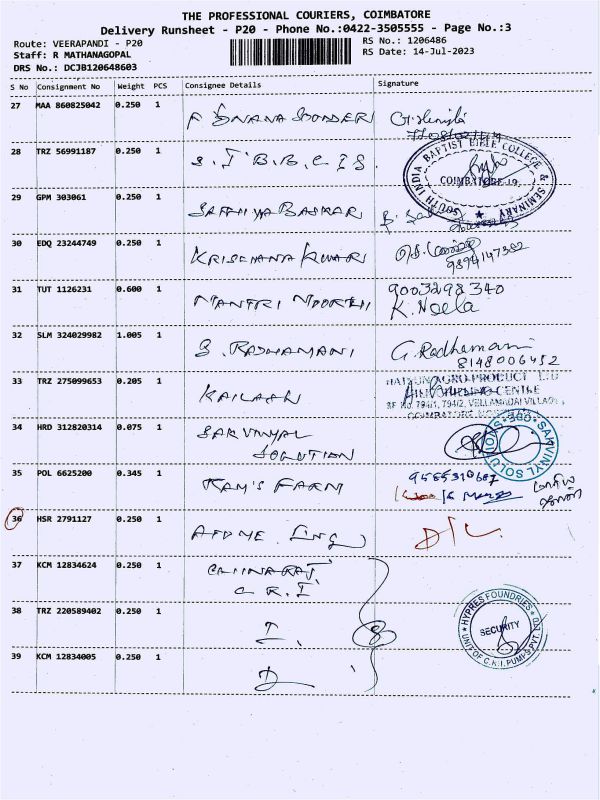 THE PROFESSIONAL COURIERS, COIMBATORE
Delivery Runsheet - P20 - Phone No.:0422-3505555 - Page No.:3
Route: VEERAPANDI - P20
RS No.: 1206486
Staff: R MATHANAGOPAL
RS Date: 14-Jul-2023
DRS No.: DCJB120648603
S No Consignment No Weight PCS Consignee Details Signature
27 MAA 860825042 0.250 1
28 TRZ 56991187 0.250 1 S. I B.B.C I S.
SOUTH INDIA BAPTIST BIBLE COLLEGE & SEMINARY
COIMBATORE-19
29 GPM 303061 0.250 1 SATHIYA BASKAR
30 EDQ 23244749 0.250 1 KRISHANA KUMAR
9894147352
31 TUT 1126231 0.600 1 MANTRI MOORTHI 9003298340
K. Neela
32 SLM 324029982 1.005 1 S. RADHAMANI G. Radhamani
8148006452
33 TRZ 275099653 0.205 1 KAILASH
AGRO PRODUCT LTD
CENTRE
SF No. 794/1, 794/2, VELLAMADAI VILLAGE
COIMBATORE
34 HRD 312820314 0.075 1 SARVINYAL
SOLUTION
35 POL 6625200 0.345 1 RAM'S FARM
36 HSR 2791127 0.250 1 D/L
37 KCM 12834624 0.250 1 CHINARAJ.
C R I
38 TRZ 220589402 0.250 1 I.
HYPRES FOUNDRIES
SECURITY
UNIT OF C.R.I. PUMPS PVT. LTD
39 KCM 12834005 0.250 1 D